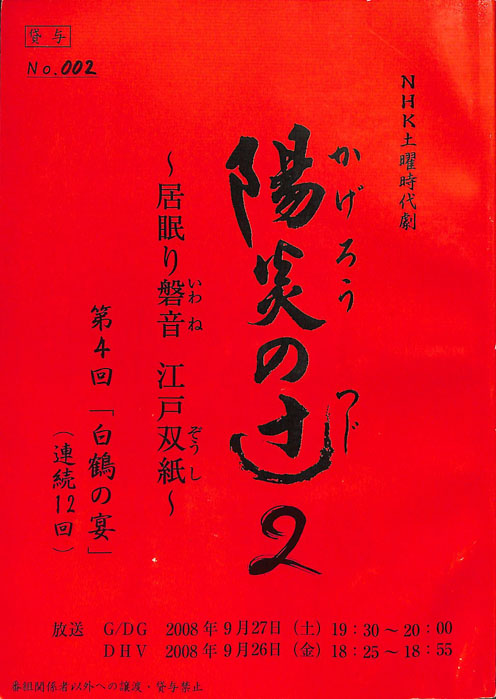 貸与
No.002
NHK土曜時代劇
かげろう つじ
陽炎の辻2
～居眠り磐音 江戸双紙～
いわ ね ぞう し
第4回「白鶴の宴」
(連続12回)
放送 G/DG 2008年9月27日(土)19:30～20:00
DHV 2008年9月26日(金)18:25～18:55
番組関係者以外への譲渡・貸与禁止